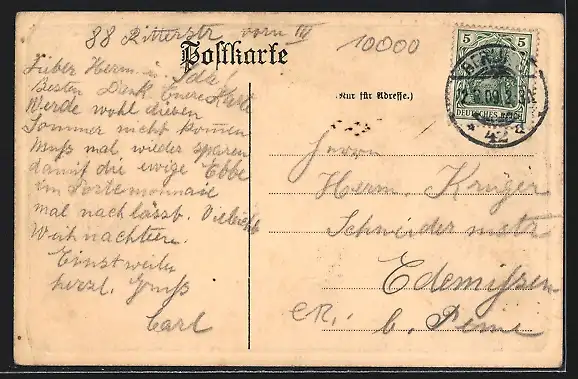 88 Ritterstr vorn III
Postkarte
10000
Lieber Herm u. Ida!
Besten Dank Eure Karte
Werde wohl diesen
Sommer nicht kommen
Muß mal wieder sparen
damit die ewige Ebbe
im Portemonnaie
mal nachlässt. Vielleicht
Weihnachten.
Einstweilen
herzl. Gruß
Carl
Nur für Adresse.)
5 5
DEUTSCHES REICH
42
Herrn
Herm. Krüger
Schneidermstr
Edemissen
b. Peine